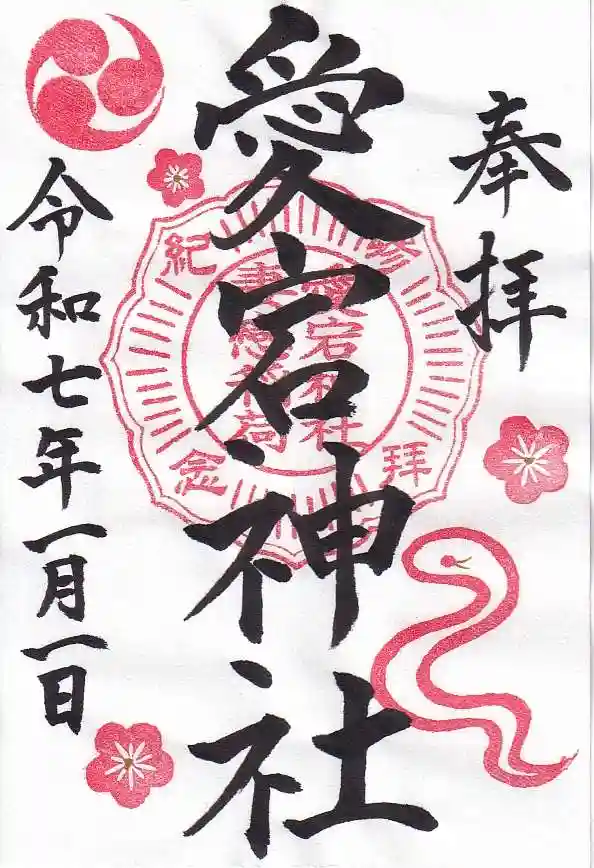 奉拝
愛宕神社
令和七年一月一日
參拝
紀念
愛宕神社